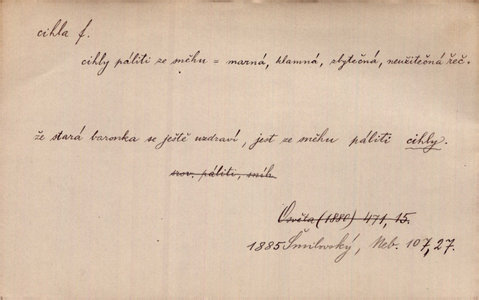 cihla f.
cihly páliti ze sněhu = marná, klamná, zbytečná, neužitečná řeč.
že stará baronka se ještě uzdraví, jest ze sněhu páliti cihly.
srov. páliti, sníh
Osvěta (1880) 471, 15.
1885 Šmilovský, Neb. 107, 27.